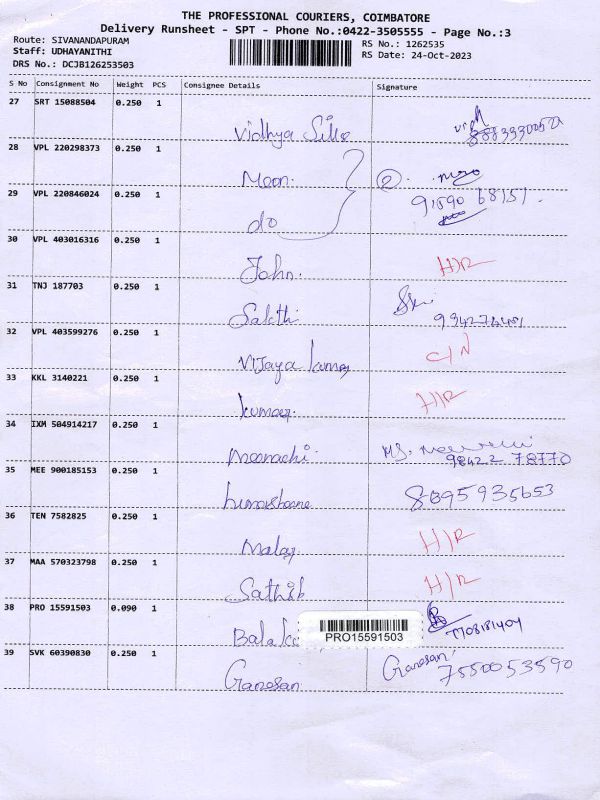 THE PROFESSIONAL COURIERS, COIMBATORE
Delivery Runsheet - SPT - Phone No.:0422-3505555 - Page No.:3
Route: SIVANANDAPURAM
Staff: UDHAYANITHI
DRS No.: DCJB126253503
RS No.: 1262535
RS Date: 24-Oct-2023
S No Consignment No Weight PCS Consignee Details Signature
27 SRT 15088504 0.250 1
Vidhya
28 VPL 220298373 0.250 1
Moon. 2
29 VPL 220846024 0.250 1
do 91590 68151.
30 VPL 403016316 0.250 1
John. H/R
31 TNJ 187703 0.250 1
Sakthi
32 VPL 403599276 0.250 1
Vijaya kumar C/N
33 KKL 3140221 0.250 1
kumar H/R
34 IXM 504914217 0.250 1
Meenachi. MS.
98422 78770
35 MEE 900185153 0.250 1
8095935653
36 TEN 7582825 0.250 1
Malar H/R
37 MAA 570323798 0.250 1
Sathib H/R
38 PRO 15591503 0.090 1
PRO15591503
39 SVK 60390830 0.250 1
Ganesan Ganesan 7550053590